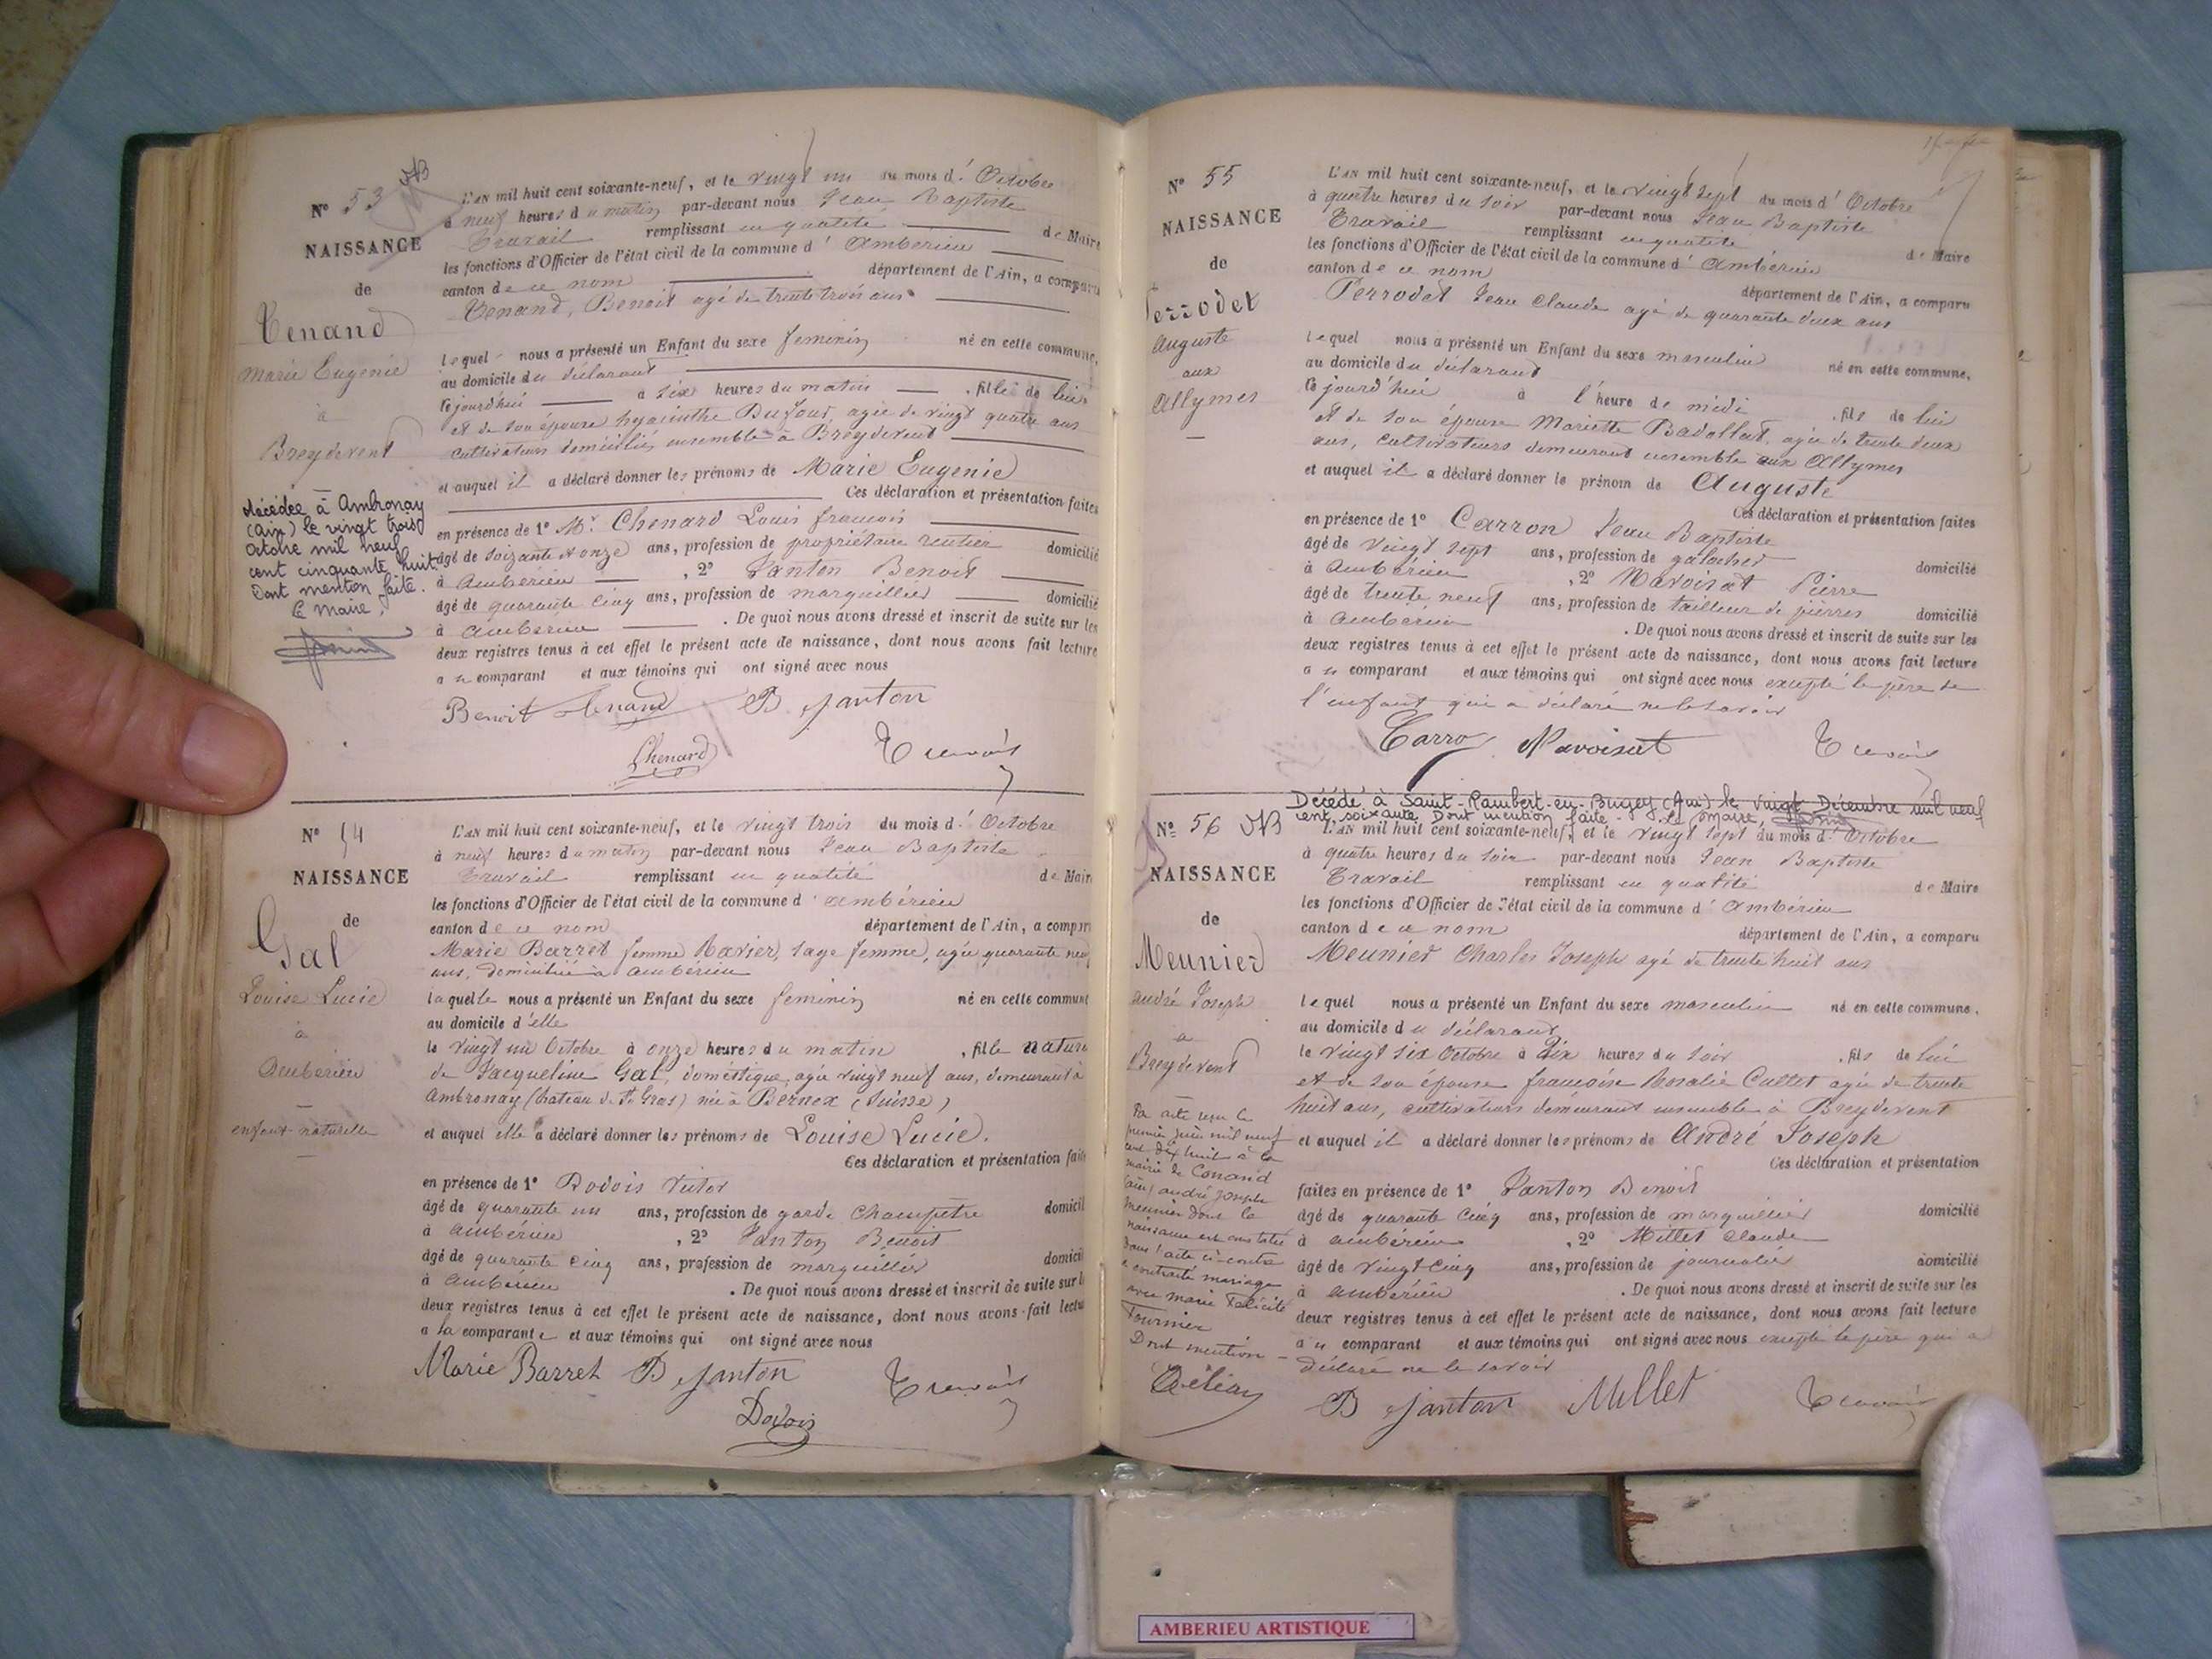 N° 53
NAISSANCE
de
Tenand
Marie Eugénie
à
Breydevent
décédée à Ambronay
(Ain) le vingt trois
octobre mil neuf
cent cinquante huit.
Dont mention faite.
Le Maire,
L'AN mil huit cent soixante-neuf, et le vingt un du mois d'Octobre
à neuf heures du matin par-devant nous Jean Baptiste
Travail remplissant en qualité de Maire
les fonctions d'Officier de l'état civil de la commune d'Ambérieu
canton de ce nom département de l'Ain, a comparu
Tenand, Benoit agé de trente trois ans
lequel nous a présenté un Enfant du sexe feminin né en cette commune,
au domicile du déclarant
cejourd'hui à six heures du matin, fille de lui
et de son épouse hyacinthe Dufour, agée de vingt quatre ans
cultivateurs domiciliés ensemble à Breydevent
et auquel il a déclaré donner les prénoms de Marie Eugenie
Ces déclaration et présentation faites
en présence de 1° Mr. Chenard Louis francois
âgé de soizante et onze ans, profession de propriétaire rentier domicilié
à Ambérieu, 2° Janton Benoit
âgé de quarante cinq ans, profession de marguillier domicilié
à Ambérieu. De quoi nous avons dressé et inscrit de suite sur les
deux registres tenus à cet effet le présent acte de naissance, dont nous avons fait lecture
au comparant et aux témoins qui ont signé avec nous
Benoit Tenand B Janton
Chenard Travail
N° 54
NAISSANCE
de
Gal
Louise Lucie
à
Ambérieu
enfant naturelle
L'AN mil huit cent soixante-neuf, et le vingt trois du mois d'Octobre
à neuf heures du matin par-devant nous Jean Baptiste
Travail remplissant en qualité de Maire
les fonctions d'Officier de l'état civil de la commune d'Ambérieu
canton de ce nom département de l'Ain, a comparu
Marie Barret femme Ravier, sage femme, agée quarante neuf
ans, domiciliée à Ambérieu
laquelle nous a présenté un Enfant du sexe feminin né en cette commune
au domicile d'elle
le vingt un Octobre à onze heures du matin, fille nature
de Jacqueline Gal, doméstique, agée vingt neuf ans, demeurant à
Ambronay (chateau de St Gras) née à Bernex (Suisse)
et auquel elle a déclaré donner les prénoms de Louise Lucie.
Ces déclaration et présentation faites
en présence de 1° Dodois Victor
âgé de quarante un ans, profession de garde Champêtre domicil
à Ambérieu, 2° Janton Benoit
âgé de quarante cinq ans, profession de marguillier domicil
à Ambérieu. De quoi nous avons dressé et inscrit de suite sur l
deux registres tenus à cet effet le présent acte de naissance, dont nous avons fait lectu
a la comparante et aux témoins qui ont signé avec nous
Marie Barret B Janton Travail
Dodois
N° 55
NAISSANCE
de
Perrodet
Auguste
aux
Allymes
L'AN mil huit cent soixante-neuf, et le vingt sept du mois d'Octobre
à quatre heures du soir par-devant nous Jean Baptiste
Travail remplissant en qualité de Maire
les fonctions d'Officier de l'état civil de la commune d'Ambérieu
canton de ce nom département de l'Ain, a comparu
Perrodet Jean Claude agé de quarante deux ans
lequel nous a présenté un Enfant du sexe masculin né en cette commune,
au domicile du déclarant
cejourd'hui à l'heure de midi, fils de lui
et de son épouse Mariette Badollat, agée de trente deux
ans, cultivateurs demeurant ensemble aux Allymes
et auquel il a déclaré donner le prénom de Auguste
Ces déclaration et présentation faites
en présence de 1° Carron Jean Baptiste
âgé de vingt sept ans, profession de galocher domicilié
à Ambérieu, 2° Navoisat Pierre
âgé de trente neuf ans, profession de tailleur de pierres domicilié
à Ambérieu. De quoi nous avons dressé et inscrit de suite sur les
deux registres tenus à cet effet le présent acte de naissance, dont nous avons fait lecture
au comparant et aux témoins qui ont signé avec nous excepté le père de
l'enfant qui a déclaré ne le savoir
Carro Navoisat Travail
Décédé à Saint-Rambert-en-Bugey (Ain) le vingt Décembre mil neuf
cent soixante. Dont mention faite. Le Maire,
N° 56
NAISSANCE
de
Meunier
André Joseph
à
Breydevent
Par acte reçu le
premier juin mil neuf
cent dix huit à la
mairie de Conand
(ain) andré joseph
meunier dont la
naissance est constatée
dans l'acte ci-contre
a contracté mariage
avec marie Félicité
Fournier
Dont mention
L'AN mil huit cent soixante-neuf, et le vingt sept du mois d'Octobre
à quatre heures du soir par-devant nous Jean Baptiste
Travail remplissant en qualité de Maire
les fonctions d'Officier de l'état civil de la commune d'Ambérieu
canton de ce nom département de l'Ain, a comparu
Meunier Charles Joseph agé de trente huit ans
lequel nous a présenté un Enfant du sexe masculin né en cette commune,
au domicile du déclarant
le vingt six Octobre à Dix heures du soir, fils de lui
et de son épouse françoise Rosalie Cullet agée de trente
huit ans, cultivateurs demeurant ensemble à Breydevent
et auquel il a déclaré donner les prénoms de André Joseph
Ces déclaration et présentation
faites en présence de 1° Janton Benoit
âgé de quarante cinq ans, profession de marguillier domicilié
à Ambérieu, 2° Millet Claude
âgé de vingt cinq ans, profession de journalier domicilié
à Ambérieu. De quoi nous avons dressé et inscrit de suite sur les
deux registres tenus à cet effet le présent acte de naissance, dont nous avons fait lecture
au comparant et aux témoins qui ont signé avec nous excepté le père qui a
déclaré ne le savoir
B Janton Millet Travail
AMBERIEU ARTISTIQUE